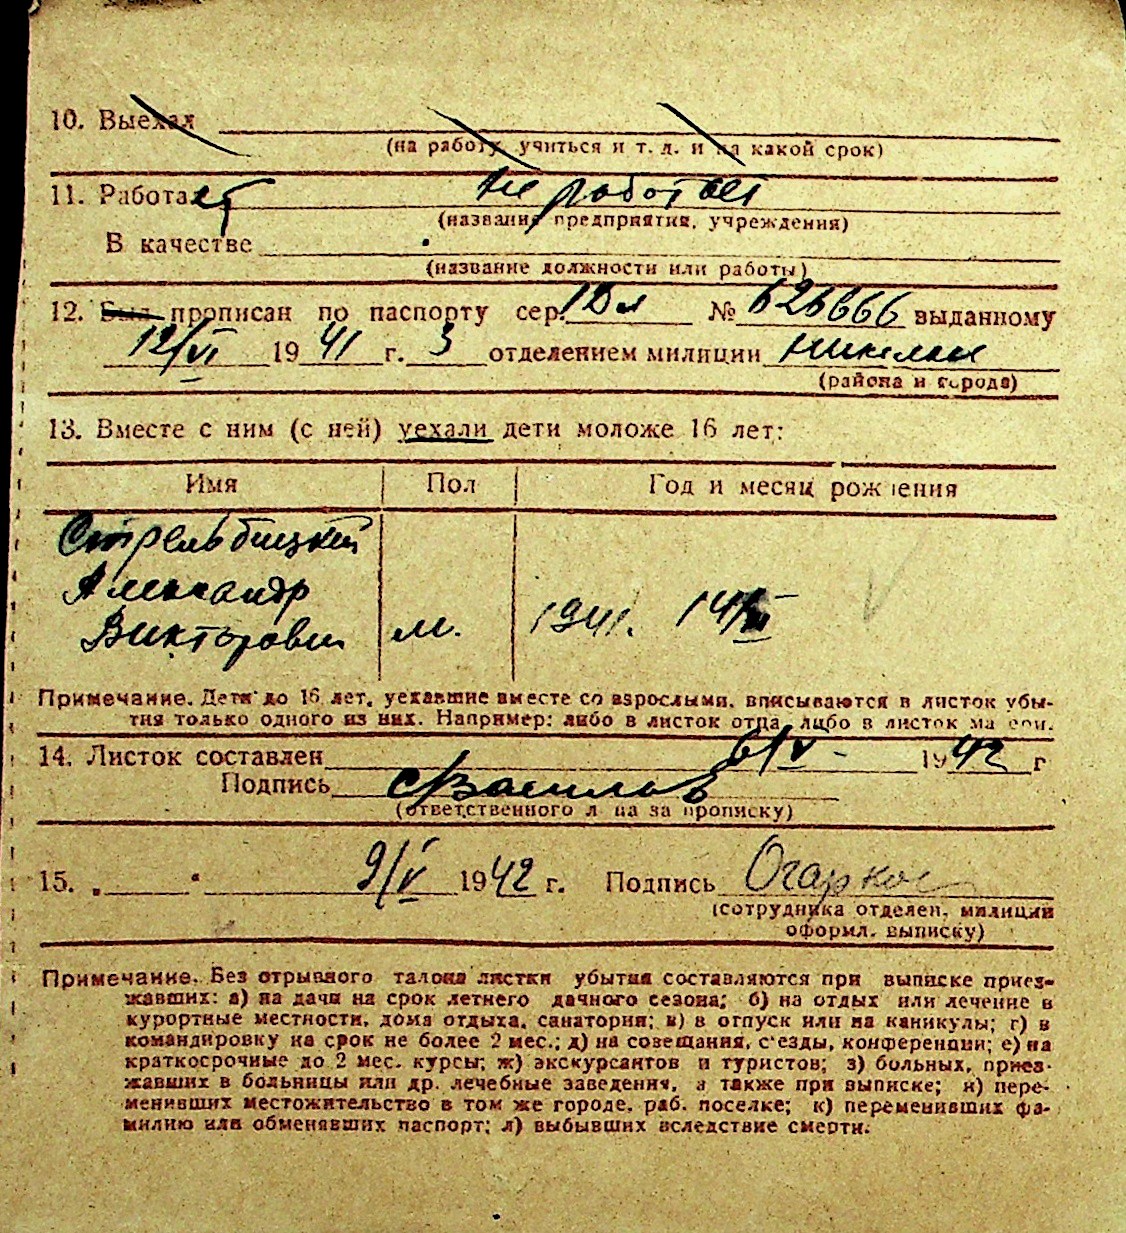 10. Выехал
(на работу, учиться и т. д. и на какой срок)
11. Работает не работает
(название предприятия, учреждения)
В качестве
(название должности или работы)
12. Был прописан по паспорту сер. № 626666 выданному
12/VI 1941 г. 3 отделением милиции
(района и города)
13. Вместе с ним (с ней) уехали дети моложе 16 лет:
Имя Пол Год и месяц рождения
Стрельбицкий
Александр
Викторович м. 1941. 14/
Примечание. Дети до 16 лет, уехавшие вместе со взрослыми, вписываются в листок убы-
тия только одного из них. Например: либо в листок отца, либо в листок матери.
14. Листок составлен 6/V - 1942 г
Подпись
(ответственного лица за прописку)
15. 9/V 1942 г. Подпись Огарков
(сотрудника отделен. милиции
оформл. выписку)
Примечание. Без отрывного талона листки убытия составляются при выписке приез-
жавших: а) на дачи на срок летнего дачного сезона; б) на отдых или лечение в
курортные местности, дома отдыха, санатории; в) в отпуск или на каникулы; г) в
командировку на срок не более 2 мес.; д) на совещания, с'езды, конференции; е) на
краткосрочные до 2 мес. курсы; ж) экскурсантов и туристов; з) больных, приез-
жавших в больницы или др. лечебные заведения, а также при выписке; и) пере-
менивших местожительство в том же городе, раб. поселке; к) переменивших фа-
милию или обменявших паспорт; л) выбывших вследствие смерти.